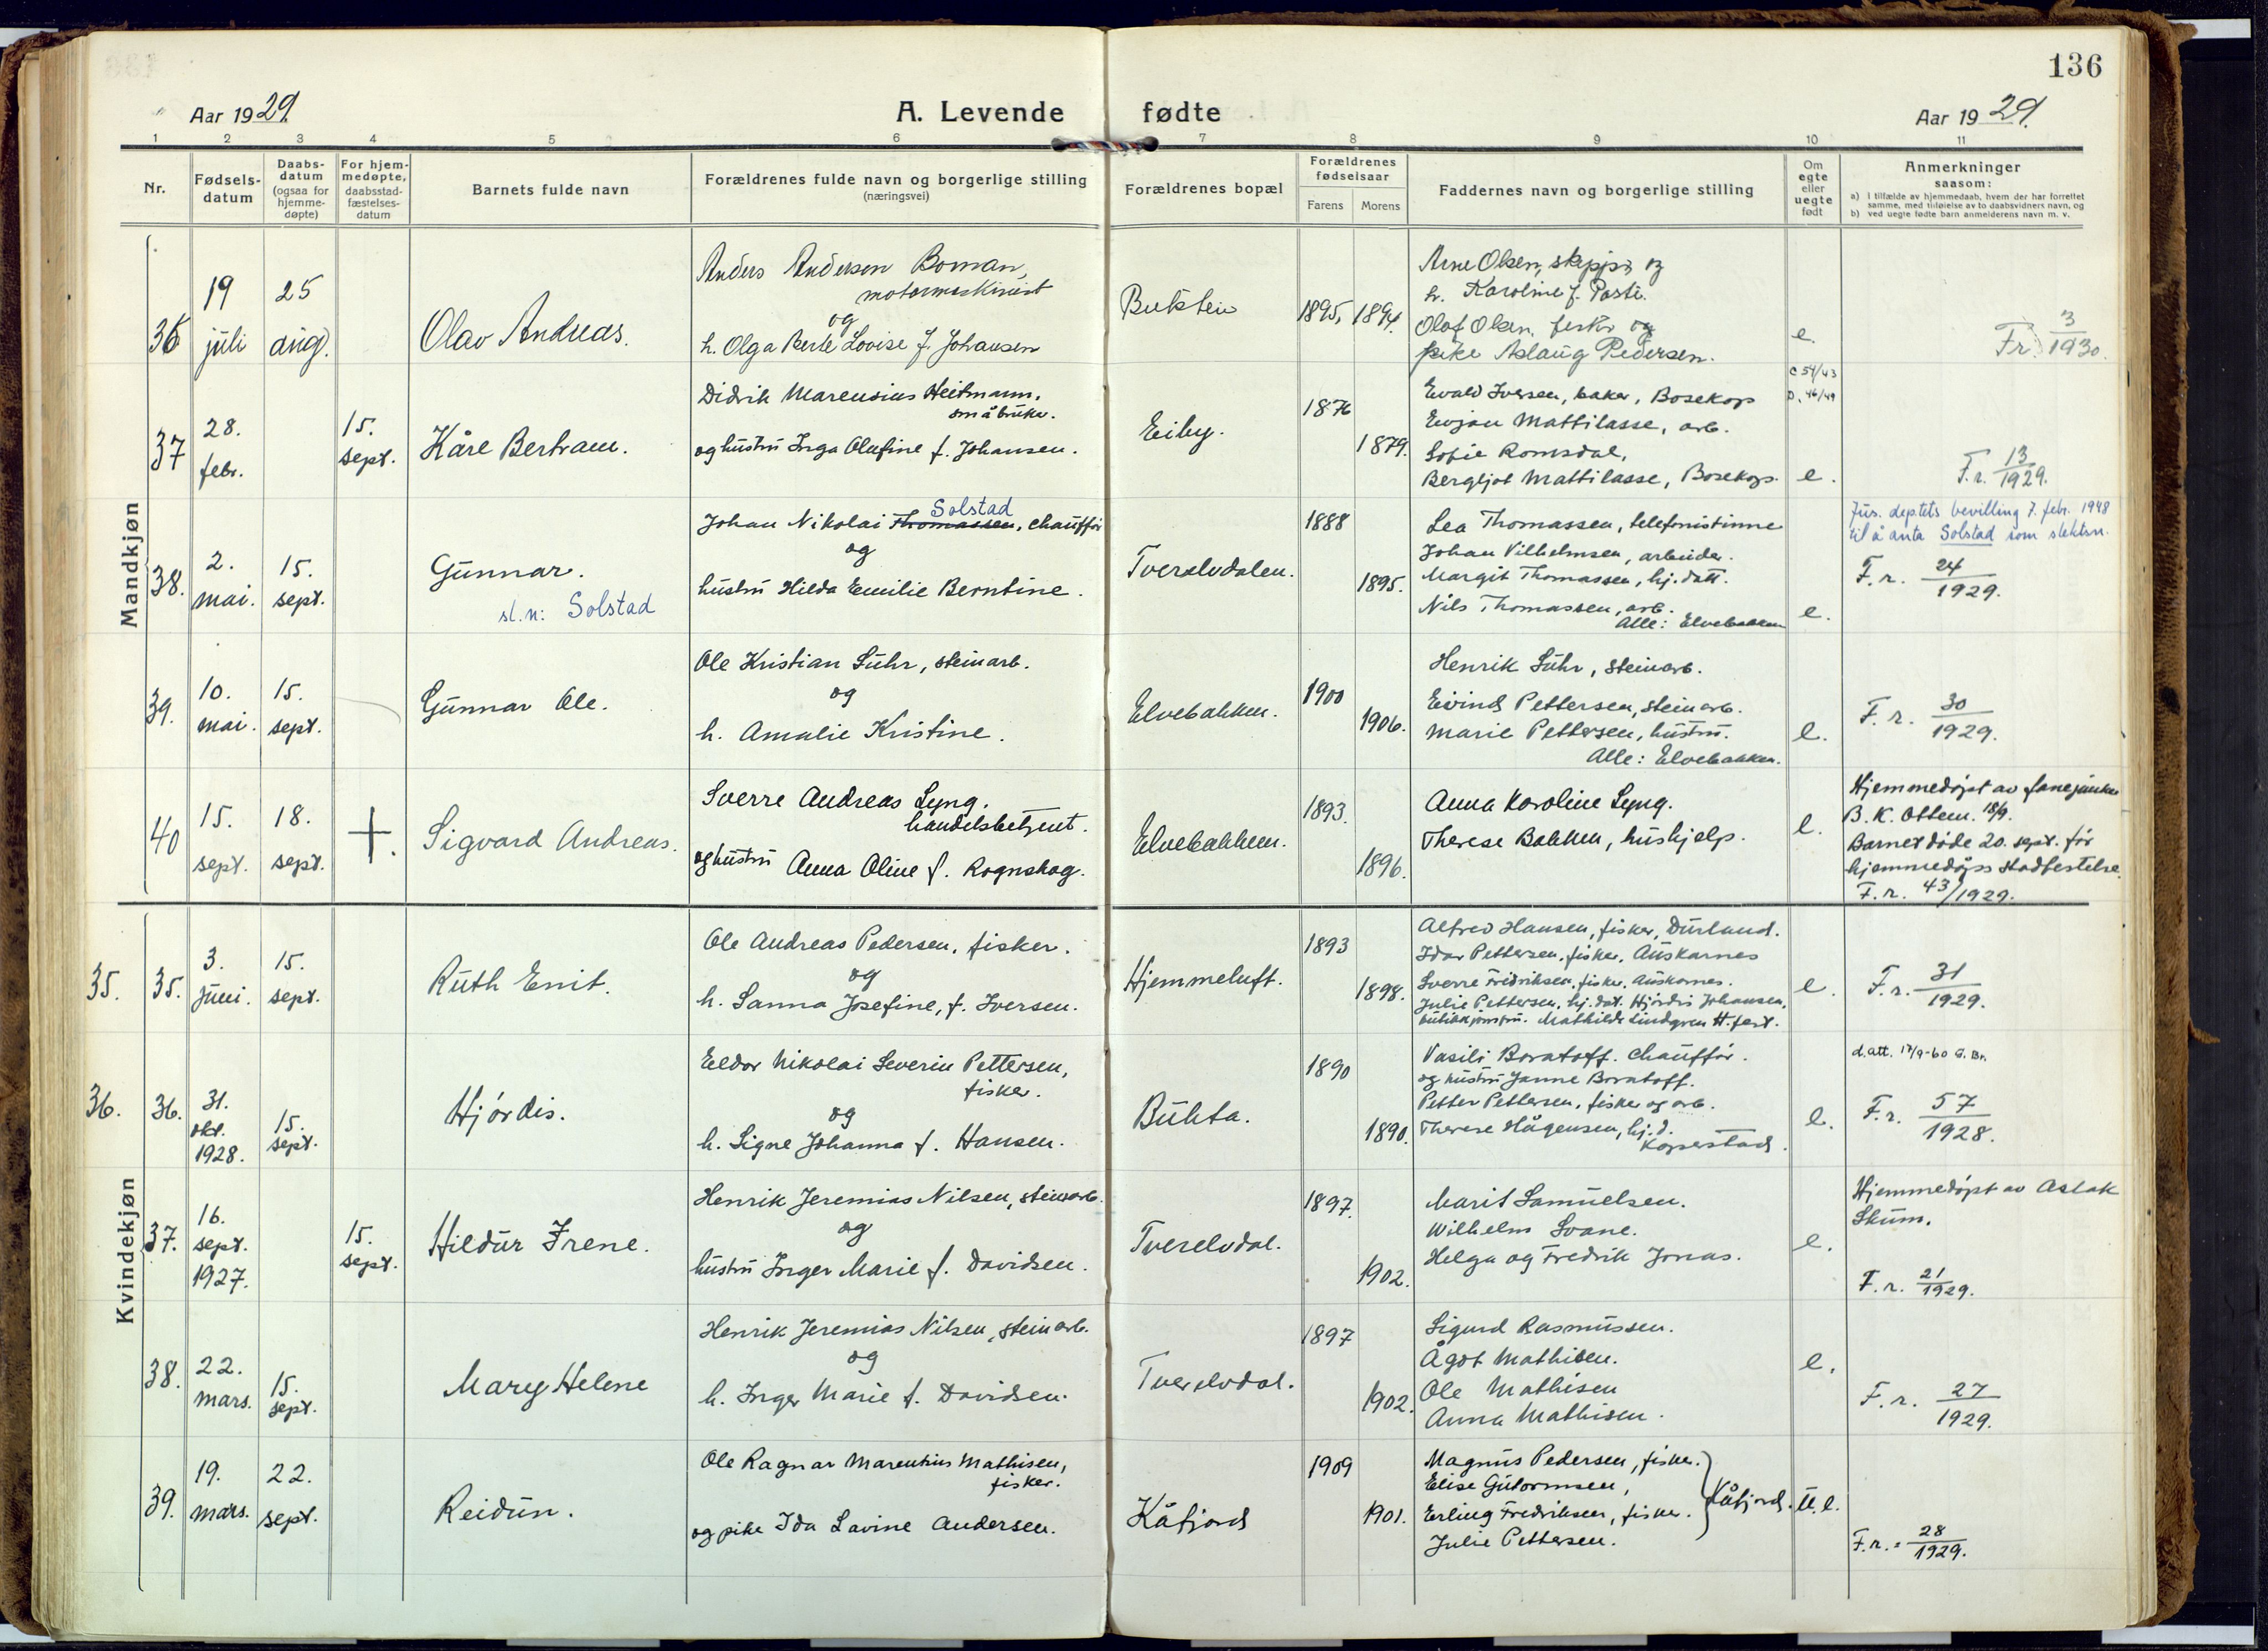 136
Aar 1929.
A. Levende fødte
Aar 1929.
1 2 3 4 5 6 7 8 9 10 11
Nr.
Fødsels-
datum
Daabs-
datum
(ogsaa for
hjemme-
døpte)
For hjem-
medøpte,
daabsstad-
fæstelses-
datum
Barnets fulde navn
Forældrenes fulde navn og borgerlige stilling
(næringsvei)
Forældrenes bopæl
Forældrenes
fødselsaar
Farens Morens
Faddernes navn og borgerlige stilling
Om
egte
eller
uegte
født
Anmerkninger
saasom:
a) I tilfælde av hjemmedaab, hvem der har forrettet
samme, med tilføielse av to daabsvidners navn, og
b) ved uegte fødte barn anmelderens navn m. v.
Mandkjøn
36
19
juli
25
aug.
Olav Andreas.
Anders Andersen Boman,
motormaskinist
og
h. Olga Berte Lovise f. Johansen
1895, 1894.
Arne Olsen, skipper og
h. Karoline f.
Olaf Olsen, fisker og
pike Aslaug Pedersen.
e.
Fr. 3/1930.
37
28.
febr.
15.
sept.
Kåre Bertram.
Didrik Marensius Heitmann,
småbruker.
og hustru Inga Olufine f. Johansen.
Eiby.
1876
1879.
Evald Iversen, baker, Bosekop
Mattilasse, arb.
Sofie Romsdal,
Bergljot Mattilasse, Bosekop.
c 54/43
D. 46/49
e.
F.r. 13/1929.
38.
2.
mai.
15.
sept.
Gunnar.
sl.n: Solstad
Solstad
Johan Nikolai Thomassen, chauffør
og
hustru Hilda Emilie Berntine.
Tverelvdalen.
1888
1895.
Lea Thomassen, telefonistinne
Johan Vilhelmsen, arbeider.
Margit Thomassen, hj. datt.
Nils Thomassen, arb.
Alle: Elvebakken
e.
Jus. deptets bevilling 7. febr. 1948
til å anta Solstad som slektsn.
F.r. 24/1929.
39.
10.
mai.
15.
sept.
Gunnar Ole.
Ole Kristian Suhr, steinarb.
og
h. Amalie Kristine.
Elvebakken.
1900
1906.
Henrik Suhr, steinarb.
Eivind Pettersen, steinarb.
Marie Pettersen, hustru.
Alle: Elvebakken.
e.
F.r. 30/1929.
40
15.
sept.
18.
sept.
+.
Sigvard Andreas.
Sverre Andreas Lyng.
handelsbetjent.
og hustru Anna Oline f. Rognskog.
Elvebakken.
1893.
1896.
Anna Karoline Lyng.
Therese Bakken, hushjelp.
e.
Hjemmedøpt av fanejunker
B. K. Ottem. 18/9.
Barnet døde 20. sept. før
hjemmedåps stadfestelse.
F.r. 43/1929.
Kvindekjøn
35. 35.
3.
juni.
15.
sept.
Ruth Emit.
Ole Andreas Pedersen, fisker.
og
h. Sanna Josefine, f. Iversen.
Hjemmeluft.
1893
1898.
Alfred Hansen, fisker, Durlund.
Idar Pettersen, fisker, Auskarnes
Sverre Fridriksen, fisker, Auskarnes.
Julie Pettersen, hj. dat. Hjørdis Johansen,
butikkjomfru. Mathilde Lindgren H.fest.
e.
F.r. 31/1929.
36. 36.
31.
okt.
1928.
15.
sept.
Hjørdis.
Eeldor Nikolai Severin Pettersen,
fisker.
og
h. Signe Johanna f. Hansen.
Bukta.
1890
1890.
Vasili Boratoff. Chauffør.
og hustru Janne Boratoff.
Petter Pettersen, fisker og arb.
Therese Hågensen, hj.d.
e.
d.att. 17/9-60 G. Br.
F.r. 57/1928.
37.
16.
sept.
1927.
15.
sept.
Hildur Irene.
Henrik Jeremias Nilsen, steinarb.
og
hustru Inger Marie f. Davidsen.
Tverelvdal.
1897.
1902.
Marit Samuelsen.
Wilhelm Svane.
Helga og Fredrik Jonas.
e.
Hjemmedøpt av Aslak
Skum.
F.r. 21/1929.
38.
22.
mars.
15.
sept.
Mary Helene
Henrik Jeremias Nilsen, steinarb.
og
h. Inger Marie f. Davidsen.
Tverelvdal.
1897
1902.
Sigurd Rasmussen.
Ågot Mathisen.
Ole Mathisen
Anna Mathisen.
e.
F.r. 27/1929.
39.
19.
mars.
22.
sept.
Reidun.
Ole Ragnar Marentius Mathisen,
fisker.
og pike Ida Lavine Andersen.
Kåfjord
1909
1901.
Magnus Pedersen, fisker.
Elise Guttormsen,
Erling Fredriksen, fisker.
Julie Pettersen.
Kåfjord.
U.e.
F.r. 28/1929.